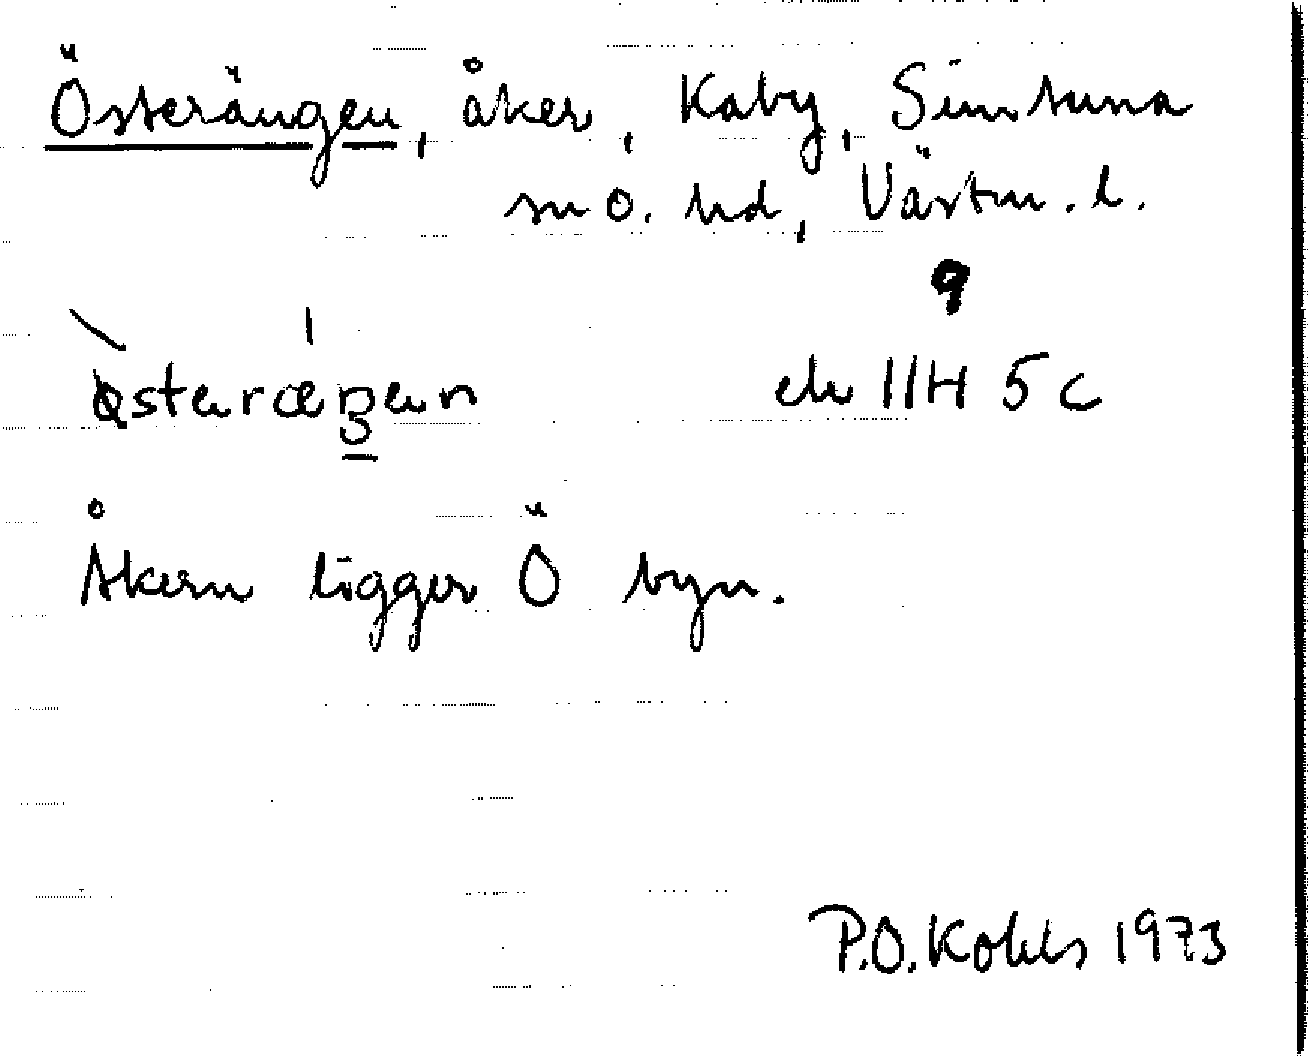 Österängen, åker, Kaby, Simtuna
sn o. hd, Västm. l.
9
ek 11H 5c
Åkern ligger Ö byn.
P.O. Kohls 1973